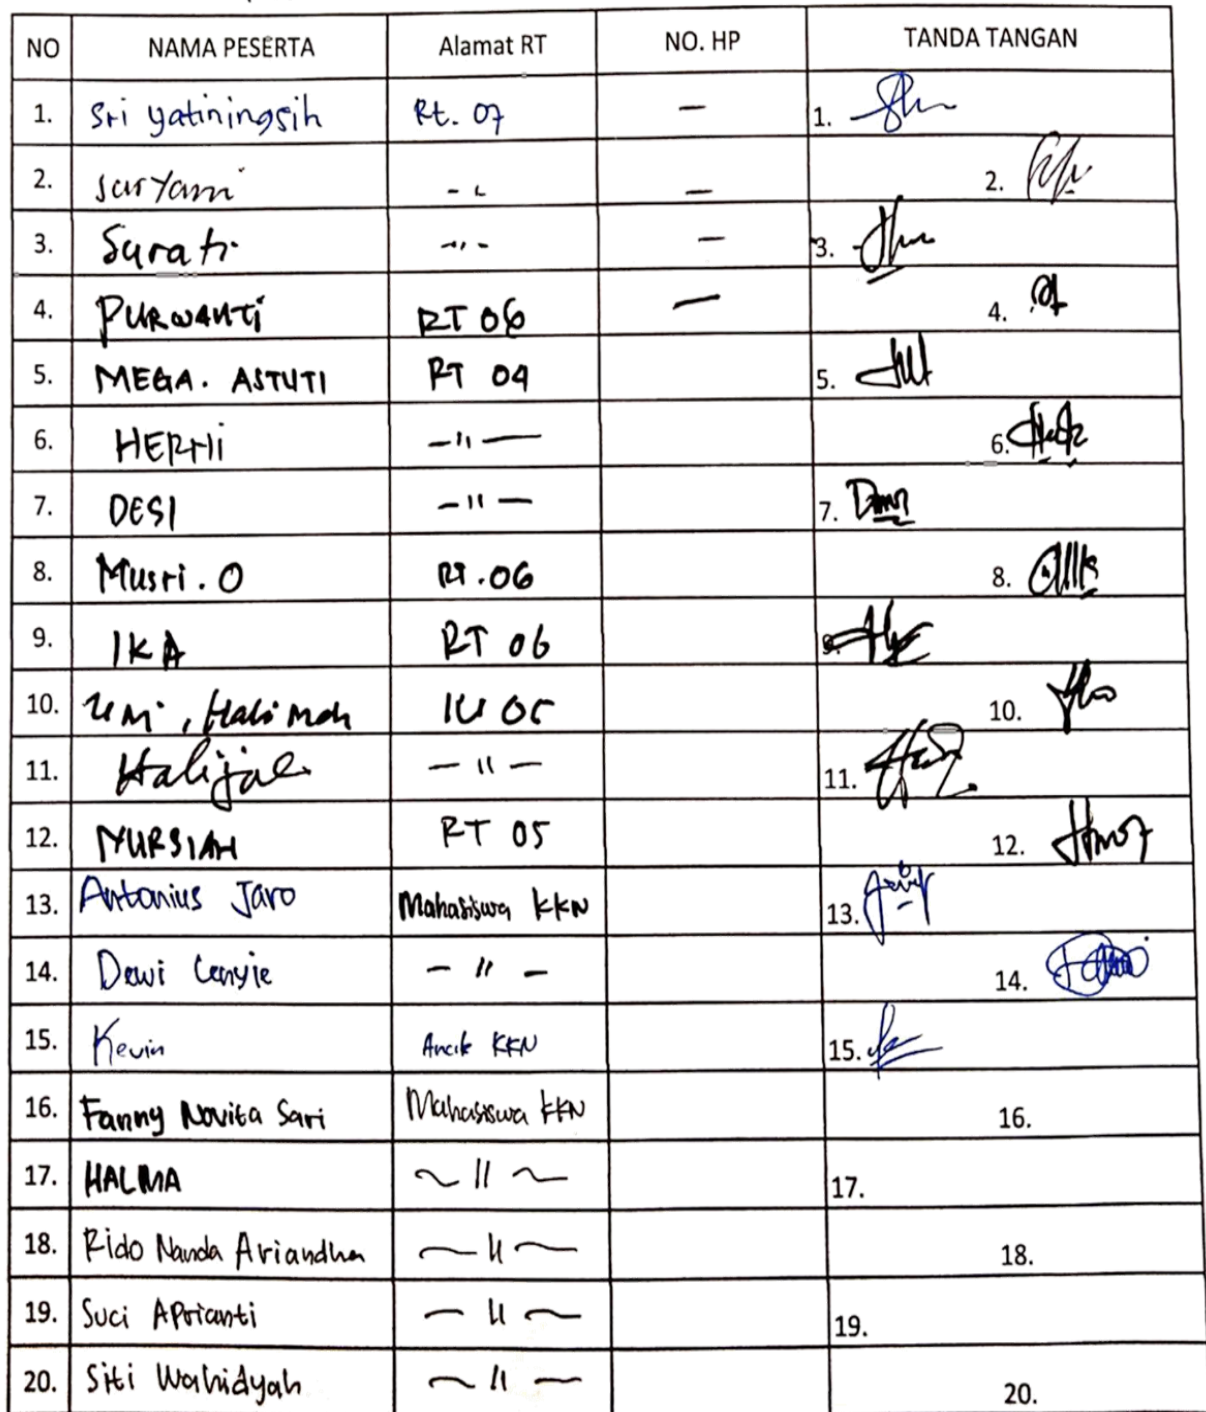 NO NAMA PESERTA Alamat RT NO. HP TANDA TANGAN
1. Sri yatiningsih Rt. 07 — 1.
2. Suryami - " — 2.
3. Surati -"- — 3.
4. PURWANTI RT 06 — 4.
5. MEGA. ASTUTI RT 04 5.
6. HERNi —"— 6.
7. DESI —"— 7.
8. Musri. O RT.06 8.
9. IKA RT 06 9.
10. Umi, Halimah 05 10.
11. Halijah —"— 11.
12. NURSIAH RT 05 12.
13. Antonius Jaro Mahasiswa KKN 13.
14. Dewi —"— 14.
15. Kevin KKN 15.
16. Fanny Novita Sari Mahasiswa KKN 16.
17. HALMA ~"~ 17.
18. Rido Nanda Ariandha ~"~ 18.
19. Suci Aprianti —"~ 19.
20. Siti Wahidyah ~"— 20.